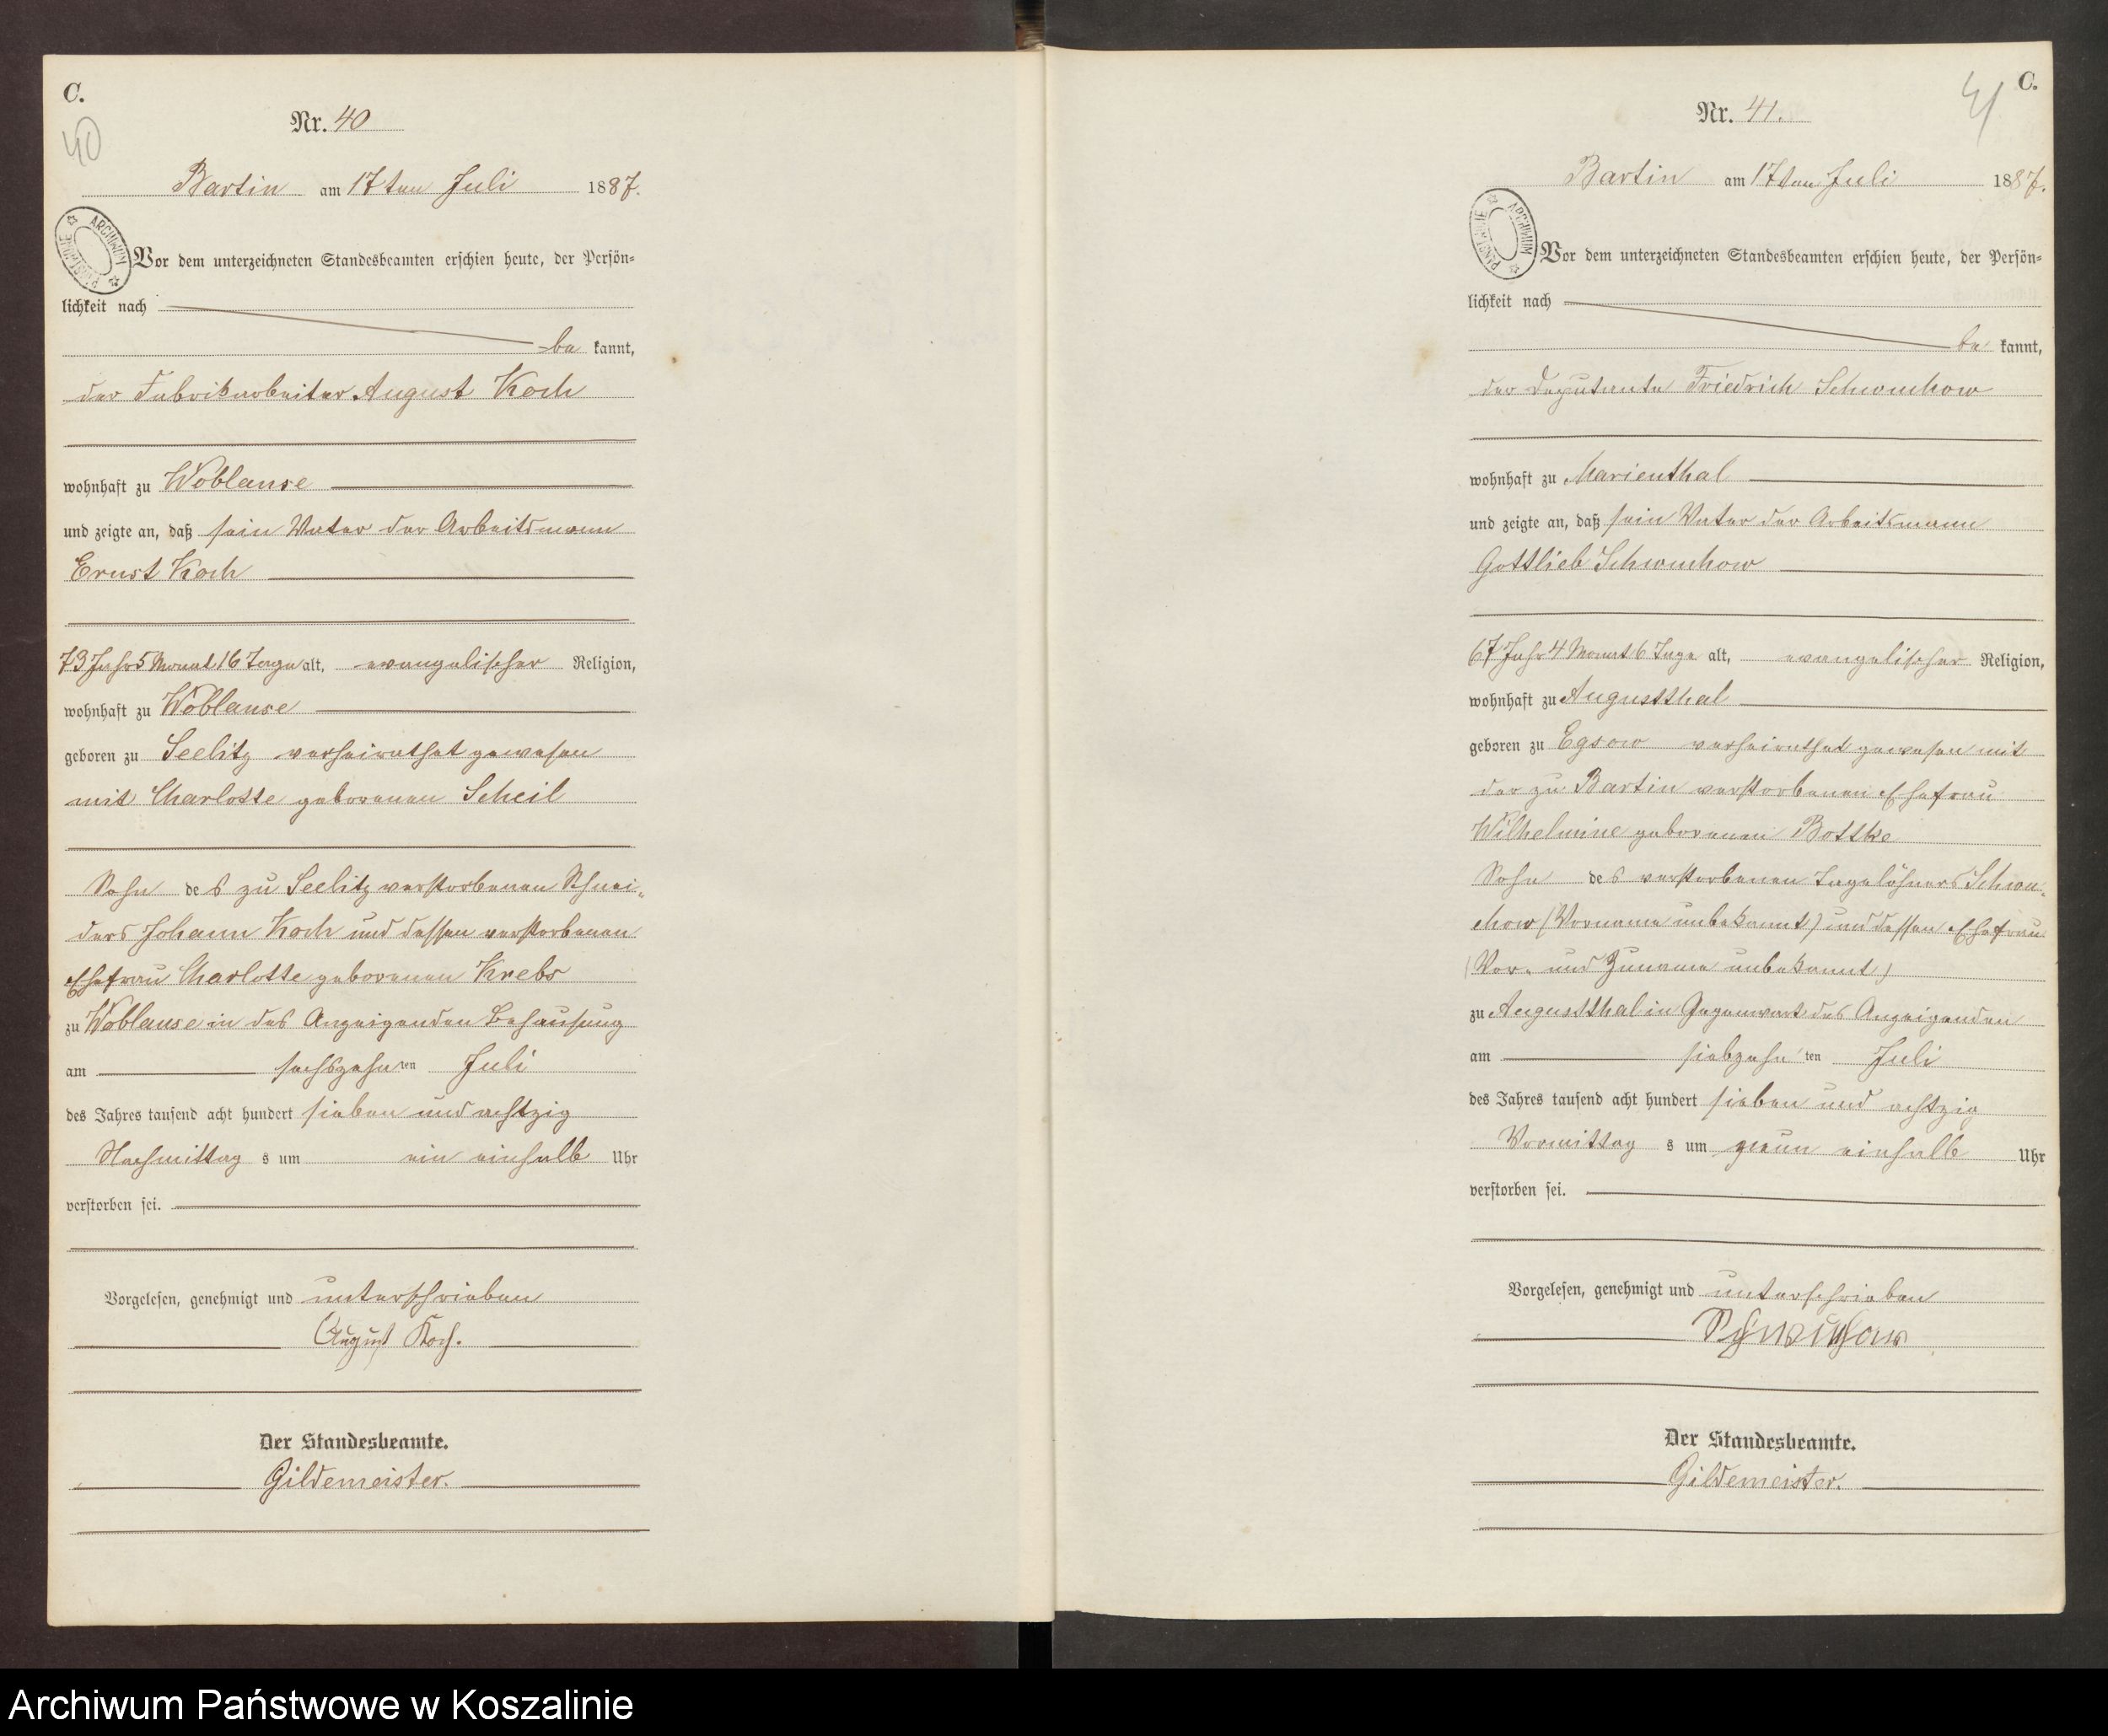 C.
40
Nr. 40
Bartin am 17ten Juli 1887.
ARCHIWUM PAŃSTWOWE
Vor dem unterzeichneten Standesbeamten erschien heute, der Persön-
lichkeit nach
be kannt,
der Fabrikarbeiter August Koch
wohnhaft zu Woblanse
und zeigte an, daß sein Vater der Arbeitsmann
Ernst Koch
73 Jahr 5 Monat 16 Tage alt, evangelischer Religion,
wohnhaft zu Woblanse
geboren zu Seelitz verheirathet gewesen
mit Charlotte geborenen Scheil
Sohn des zu Seelitz verstorbenen Schnei-
ders Johann Koch und dessen verstorbenen
Ehefrau Charlotte geborenen Krebs
zu Woblanse in des Anzeigenden Behausung
am sechszehnten Juli
des Jahres tausend acht hundert sieben und achtzig
Nachmittag s um ein einhalb Uhr
verstorben sei.
Vorgelesen, genehmigt und unterschrieben
August Koch.
Der Standesbeamte.
Gildemeister.
C.
41
Nr. 41.
Bartin am 17ten Juli 1887.
ARCHIWUM PAŃSTWOWE
Vor dem unterzeichneten Standesbeamten erschien heute, der Persön-
lichkeit nach
be kannt,
der Deputante Friedrich Schwuchow
wohnhaft zu Marienthal
und zeigte an, daß sein Vater der Arbeitsmann
Gottlieb Schwuchow
67 Jahr 4 Monat 6 Tage alt, evangelischer Religion,
wohnhaft zu Augustthal
geboren zu Egsow verheirathet gewesen mit
der zu Bartin verstorbenen Ehefrau
Wilhelmine geborenen Bottke
Sohn des verstorbenen Tagelöhners Schwu-
chow (Vorname unbekannt) und dessen Ehefrau
(Vor- und Zuname unbekannt)
zu Augustthal in Gegenwart des Anzeigenden
am siebzehnten Juli
des Jahres tausend acht hundert sieben und achtzig
Vormittag s um neun einhalb Uhr
verstorben sei.
Vorgelesen, genehmigt und unterschrieben
Schwuchow
Der Standesbeamte.
Gildemeister.
Archiwum Państwowe w Koszalinie